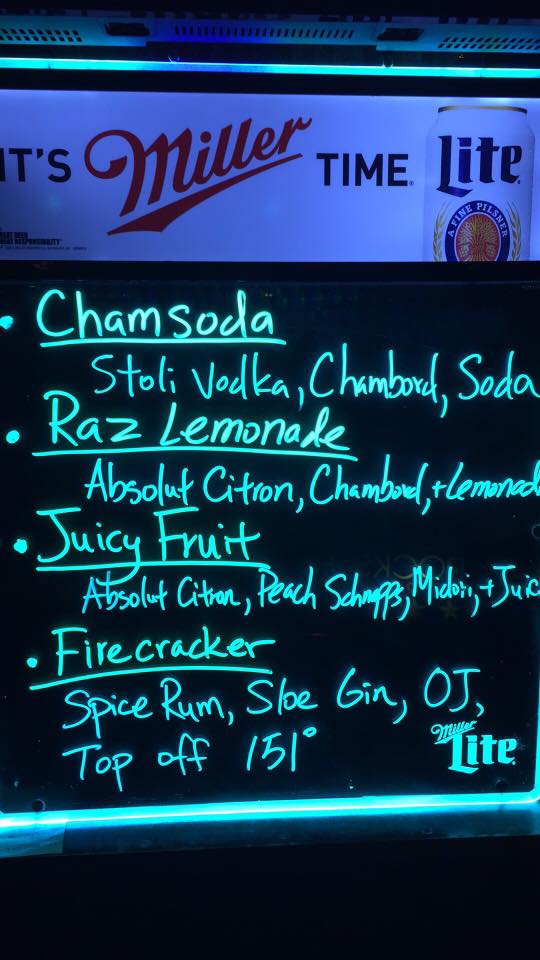 IT'S Miller TIME.
Lite
A FINE PILSNER
• Chamsoda
Stoli Vodka, Chambord, Soda
• Raz Lemonade
Absolut Citron, Chambord, + Lemonad
• Juicy Fruit
Absolut Citron, Peach Schnapps, Midori, + Juic
• Firecracker
Spice Rum, Sloe Gin, OJ,
Top off 151°
Miller
Lite